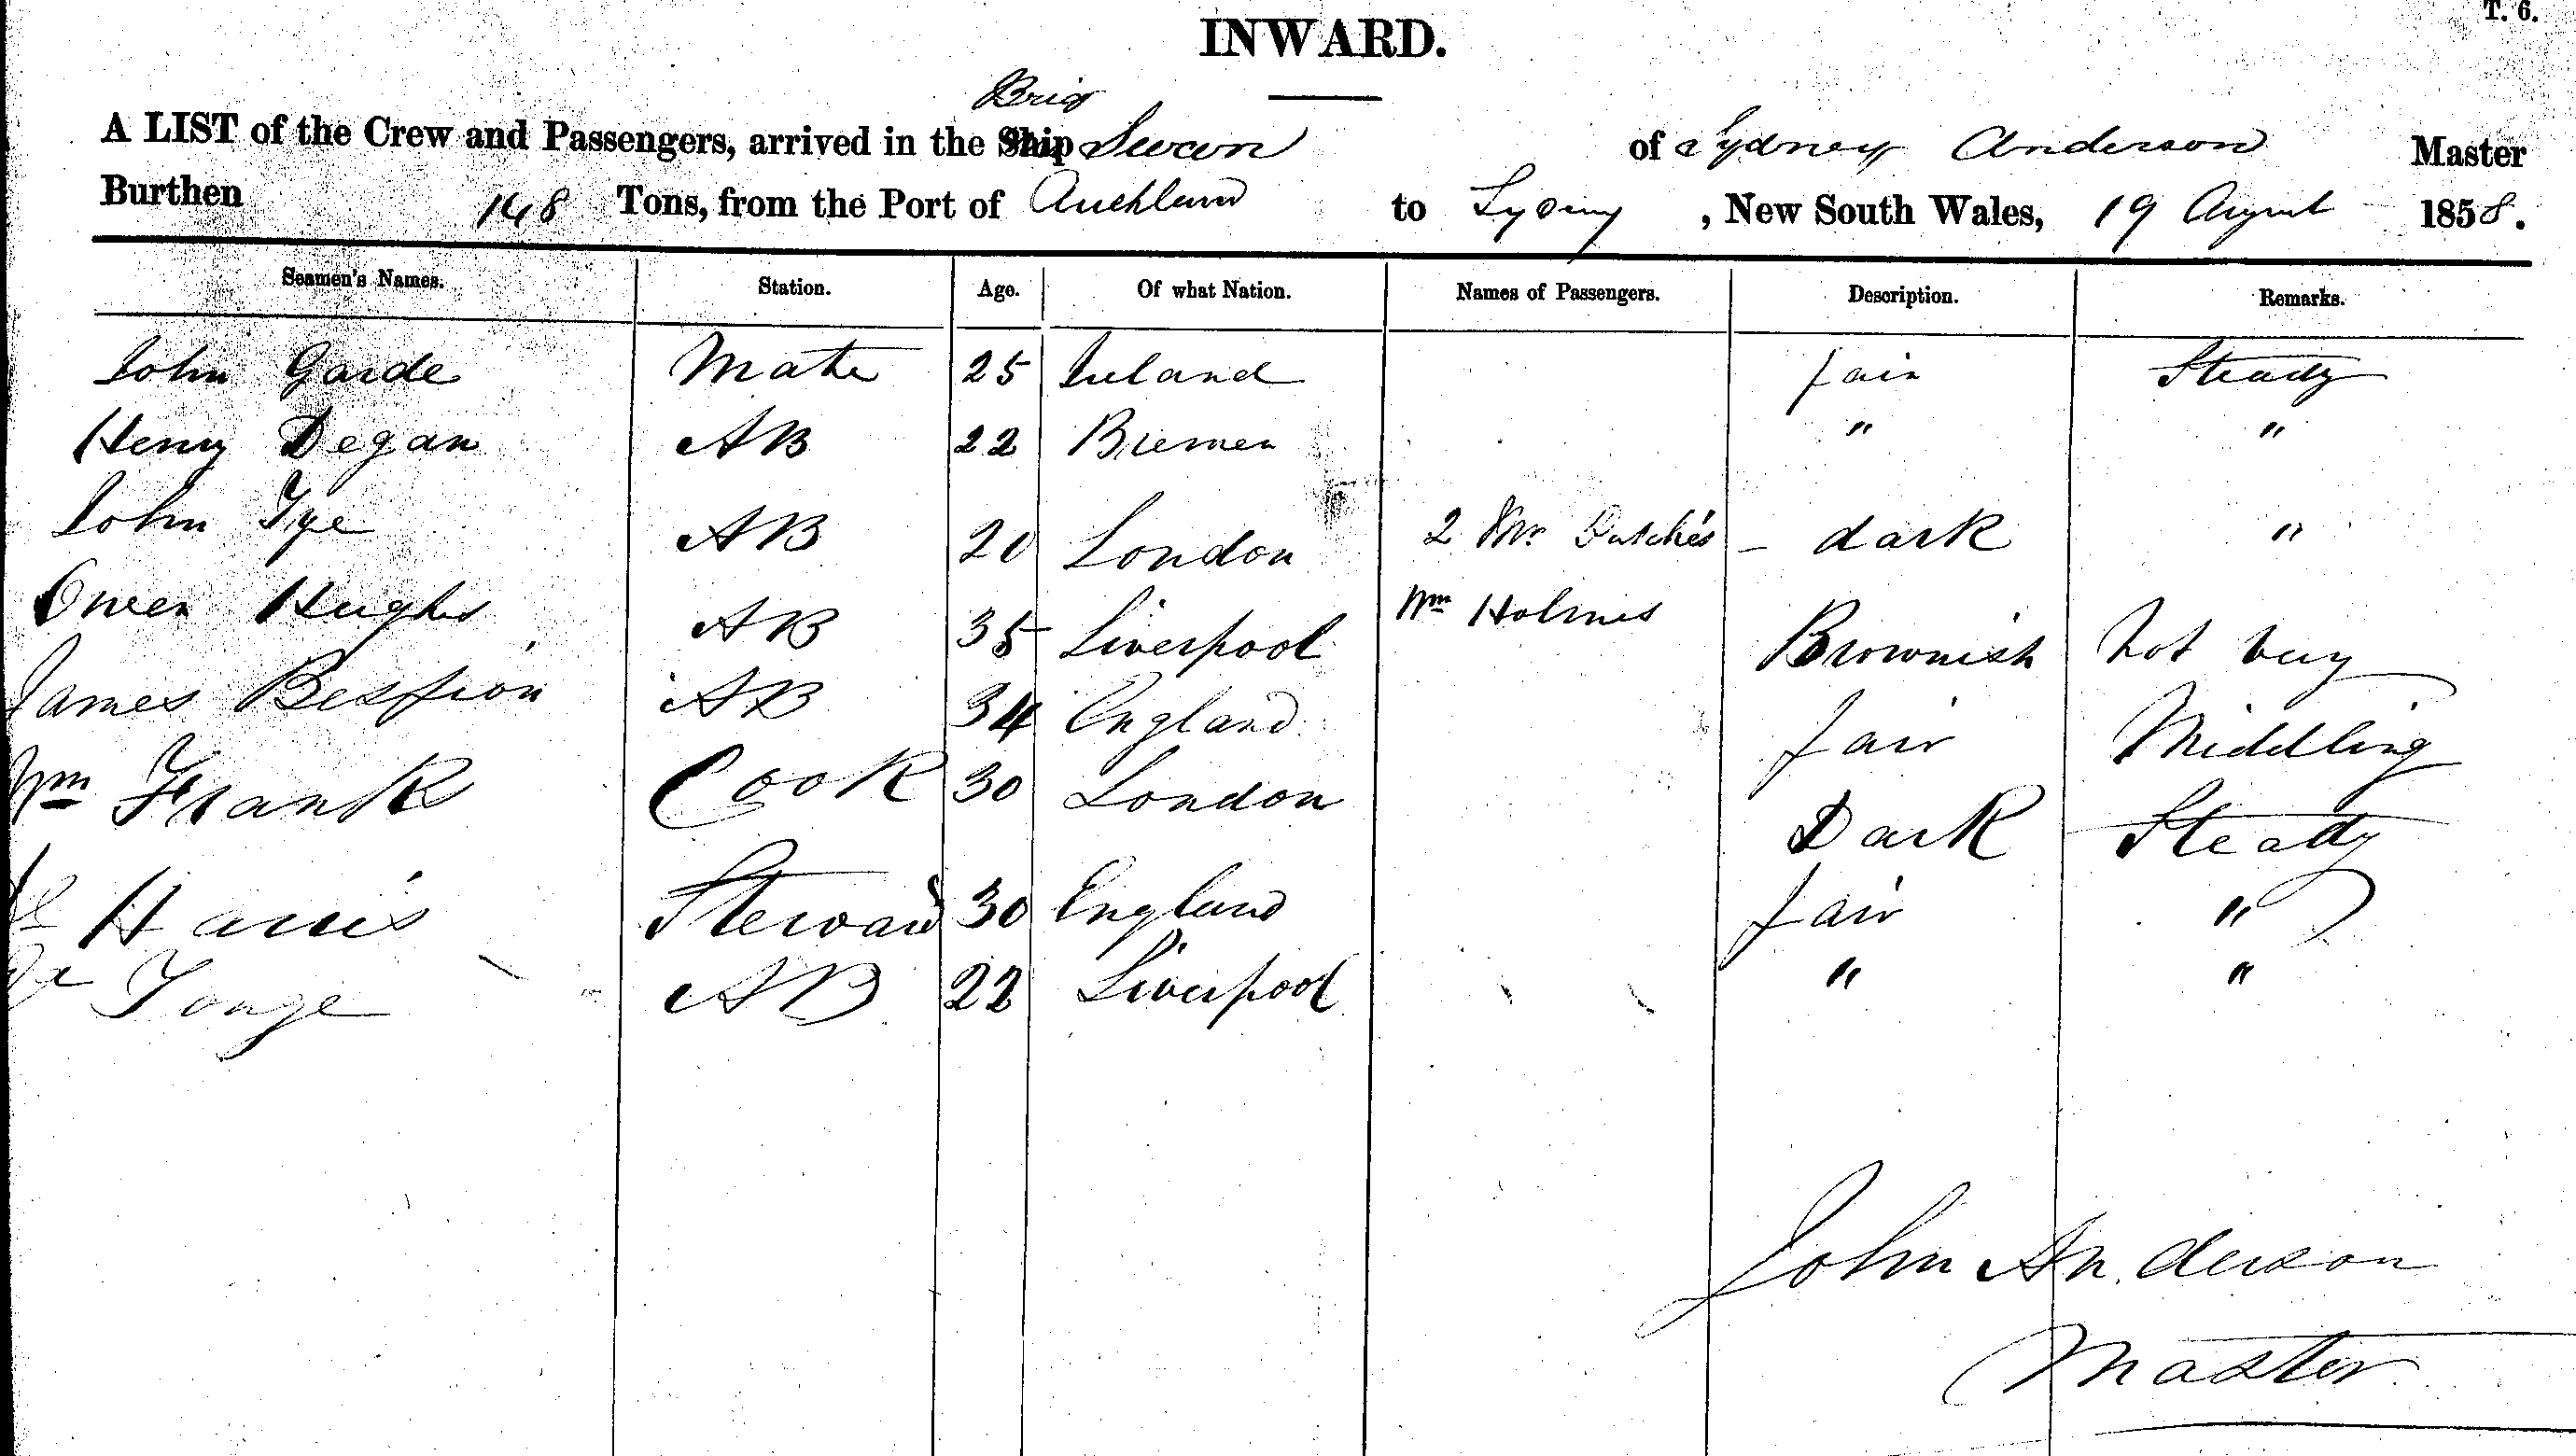 T. 6.
INWARD.
Brig
A LIST of the Crew and Passengers, arrived in the Ship Swan of Sydney Anderson Master
Burthen 148 Tons, from the Port of Auckland to Sydney, New South Wales, 19 August 1858.
Seamen's Names. Station. Age. Of what Nation. Names of Passengers. Description. Remarks.
John Garde Mate 25 Ireland fair Steady
Henry Degan AB 22 Bremen " "
John Tye AB 20 London 2 Dutchés – dark "
Owen Hughes AB 35 Liverpool Wm Holmes Brownish Not very
James AB 34 England fair Middling
Wm Frank Cook 30 London Dark Steady
Harris Steward 30 England fair "
Tonge AB 22 Liverpool " "
John Anderson
Master